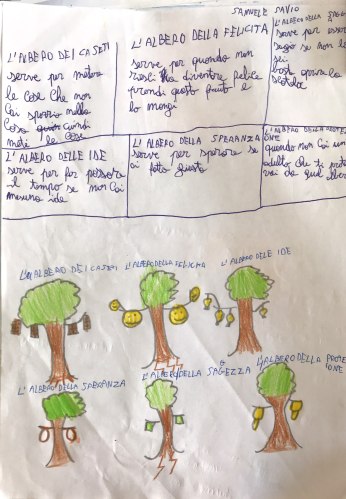 SAMUELE SAVIO
L'ALBERO DEI CASETI
serve per metere
le cose che non
Cai spazio nella
Casa cuindi
meti le cose
L'ALBERO DELLA FELICITA
serve per quando non
riesci ha diventre felice
prendi questo fruto e
lo mangi
L'ALBERO DELLA SAGG
serve per esser
sagio se non le
sei
basta
L'ALBERO DELLE IDE
serve per far passare
il tempo se non cai
nesuna ide
L'ALBERO DELLA SPERANZA
serve per sperare se
ai fatto giusto
L'ALBERO DELLA PROTE
ONE
quando non cai un
adulto che ti prote
vai da quel alber
L'ALBERO DEI CASETI
L'ALBERO DELLA FELICITA
L'ALBERO DELE IDE
L'ALBERO DELLA SPERANZA
L'ALBERO DELLA SAGEZZA
L'ALBERO DELLA PROTE
ONE